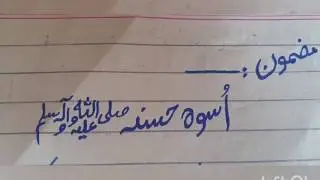 مضمون :ــــ
اُسوہ حسنہ صلی اللہ علیہ وآلہ وسلم